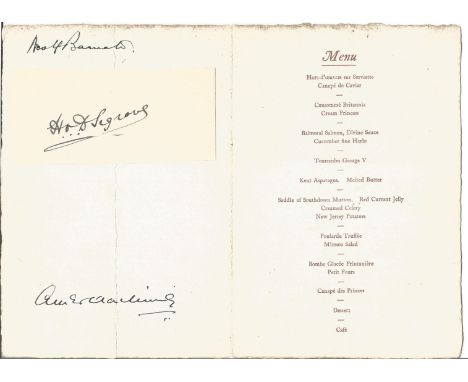 Woolf Barnato.
H.O.D. Segrave
Menu
Hors-d'œuvres sur Serviette
Canapé de Caviar
Consommé Britannia
Cream Princess
Balmoral Salmon, Divine Sauce
Cucumber fine Herbs
Tournedo George V
Kent Asparagus, Melted Butter
Saddle of Southdown Mutton. Red Currant Jelly
Creamed Celery
New Jersey Potatoes
Poularde Truffée
Mimosa Salad
Bombe Glacée Printanière
Petit Fours
Canapé des Princes
Dessert
Café